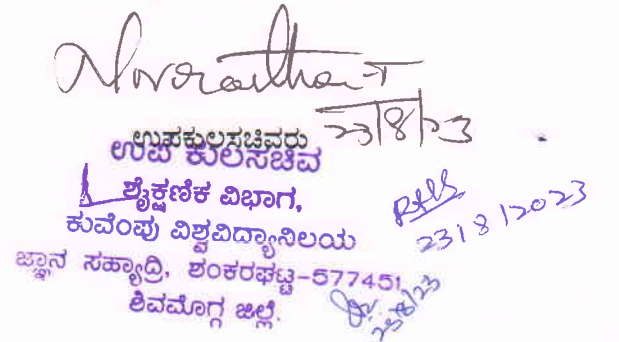 23/8/23
ಉಪಕುಲಸಚಿವರು
ಉಪ ಕುಲಸಚಿವ
ಶೈಕ್ಷಣಿಕ ವಿಭಾಗ,
ಕುವೆಂಪು ವಿಶ್ವವಿದ್ಯಾನಿಲಯ
ಜ್ಞಾನ ಸಹ್ಯಾದ್ರಿ, ಶಂಕರಘಟ್ಟ-577451
ಶಿವಮೊಗ್ಗ ಜಿಲ್ಲೆ.
23/8/2023
23/8/23